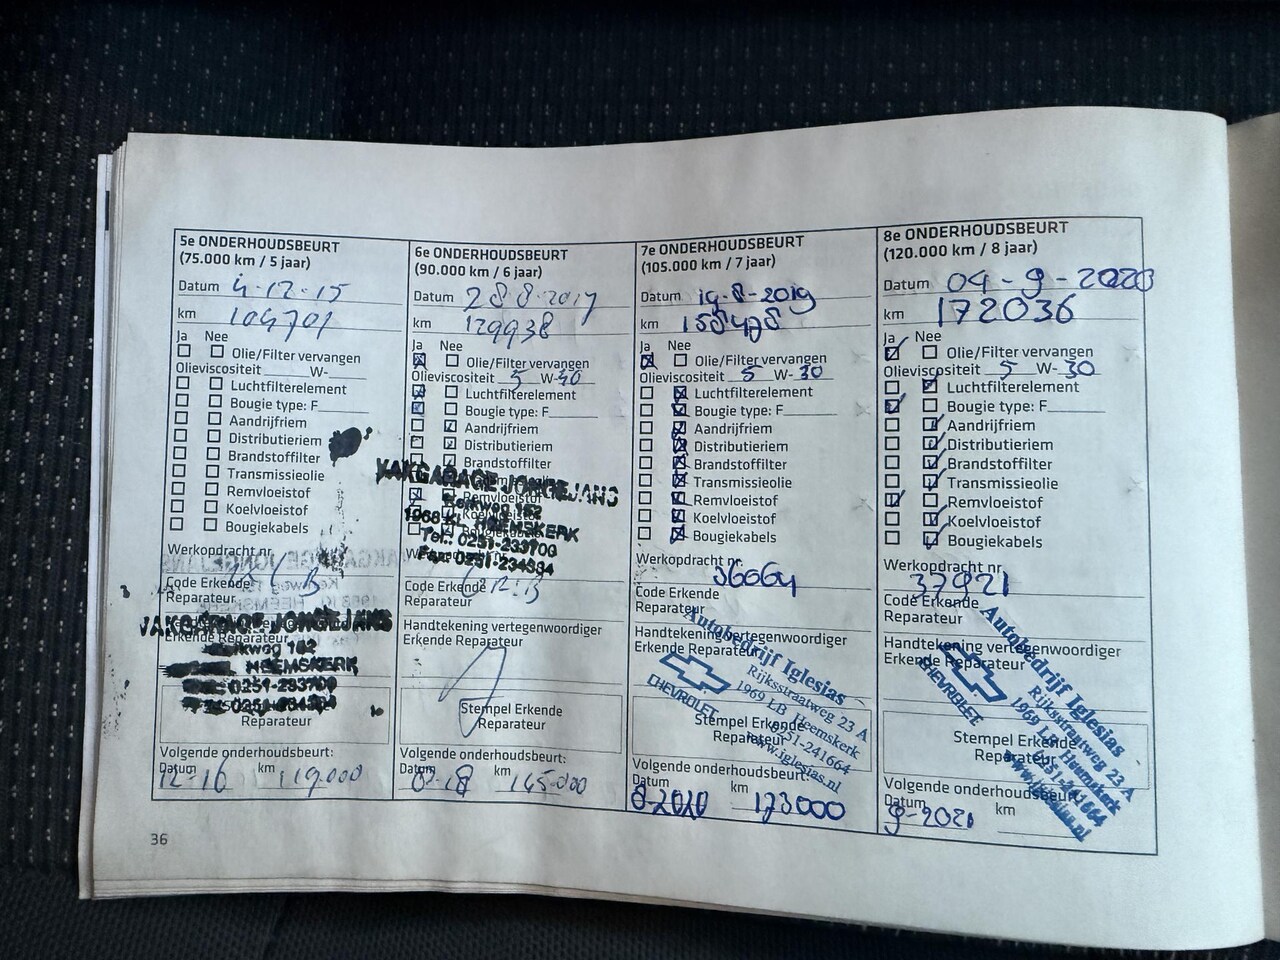 5e ONDERHOUDSBEURT
(75.000 km / 5 jaar)
Datum 4-12-15
km 104701
Ja Nee
Olie/Filter vervangen
Olieviscositeit W-
Luchtfilterelement
Bougie type: F
Aandrijfriem
Distributieriem
Brandstoffilter
Transmissieolie
Remvloeistof
Koelvloeistof
Bougiekabels
Werkopdracht nr.
Code Erkende
Reparateur
VAKGARAGE JONGEJANS
Erkende Reparateur
Kerkweg 162
HEEMSKERK
0251-233700
0251-234384
Reparateur
Volgende onderhoudsbeurt:
Datum km
12-16 119.000
6e ONDERHOUDSBEURT
(90.000 km / 6 jaar)
Datum 28 8 2017
km 129938
Ja Nee
Olie/Filter vervangen
Olieviscositeit 5 W-40
Luchtfilterelement
Bougie type: F
Aandrijfriem
Distributieriem
Brandstoffilter
VAKGARAGE JONGEJANS
Remvloeistof
Kerkweg 162
Koelvloeistof
HEEMSKERK
Tel.: 0251-233700
Fax: 0251-234384
Code Erkende
Reparateur
Handtekening vertegenwoordiger
Erkende Reparateur
Stempel Erkende
Reparateur
Volgende onderhoudsbeurt:
Datum km
8-18 145.000
7e ONDERHOUDSBEURT
(105.000 km / 7 jaar)
Datum 19-8-2019
km 158478
Ja Nee
Olie/Filter vervangen
Olieviscositeit 5 W-30
Luchtfilterelement
Bougie type: F
Aandrijfriem
Distributieriem
Brandstoffilter
Transmissieolie
Remvloeistof
Koelvloeistof
Bougiekabels
Werkopdracht nr.
36064
Code Erkende
Reparateur
Handtekening vertegenwoordiger
Erkende Reparateur
Autobedrijf Iglesias
Rijksstraatweg 23 A
1969 LB Heemskerk
0251-241664
www.iglesias.nl
CHEVROLET
Stempel Erkende
Reparateur
Volgende onderhoudsbeurt:
Datum km
8-2020 173000
8e ONDERHOUDSBEURT
(120.000 km / 8 jaar)
Datum 04-9-2020
km 172036
Ja Nee
Olie/Filter vervangen
Olieviscositeit 5 W-30
Luchtfilterelement
Bougie type: F
Aandrijfriem
Distributieriem
Brandstoffilter
Transmissieolie
Remvloeistof
Koelvloeistof
Bougiekabels
Werkopdracht nr.
37921
Code Erkende
Reparateur
Handtekening vertegenwoordiger
Erkende Reparateur
Autobedrijf Iglesias
Rijksstraatweg 23 A
1969 LB Heemskerk
0251-241664
www.iglesias.nl
CHEVROLET
Stempel Erkende
Reparateur
Volgende onderhoudsbeurt:
Datum km
9-2021
36